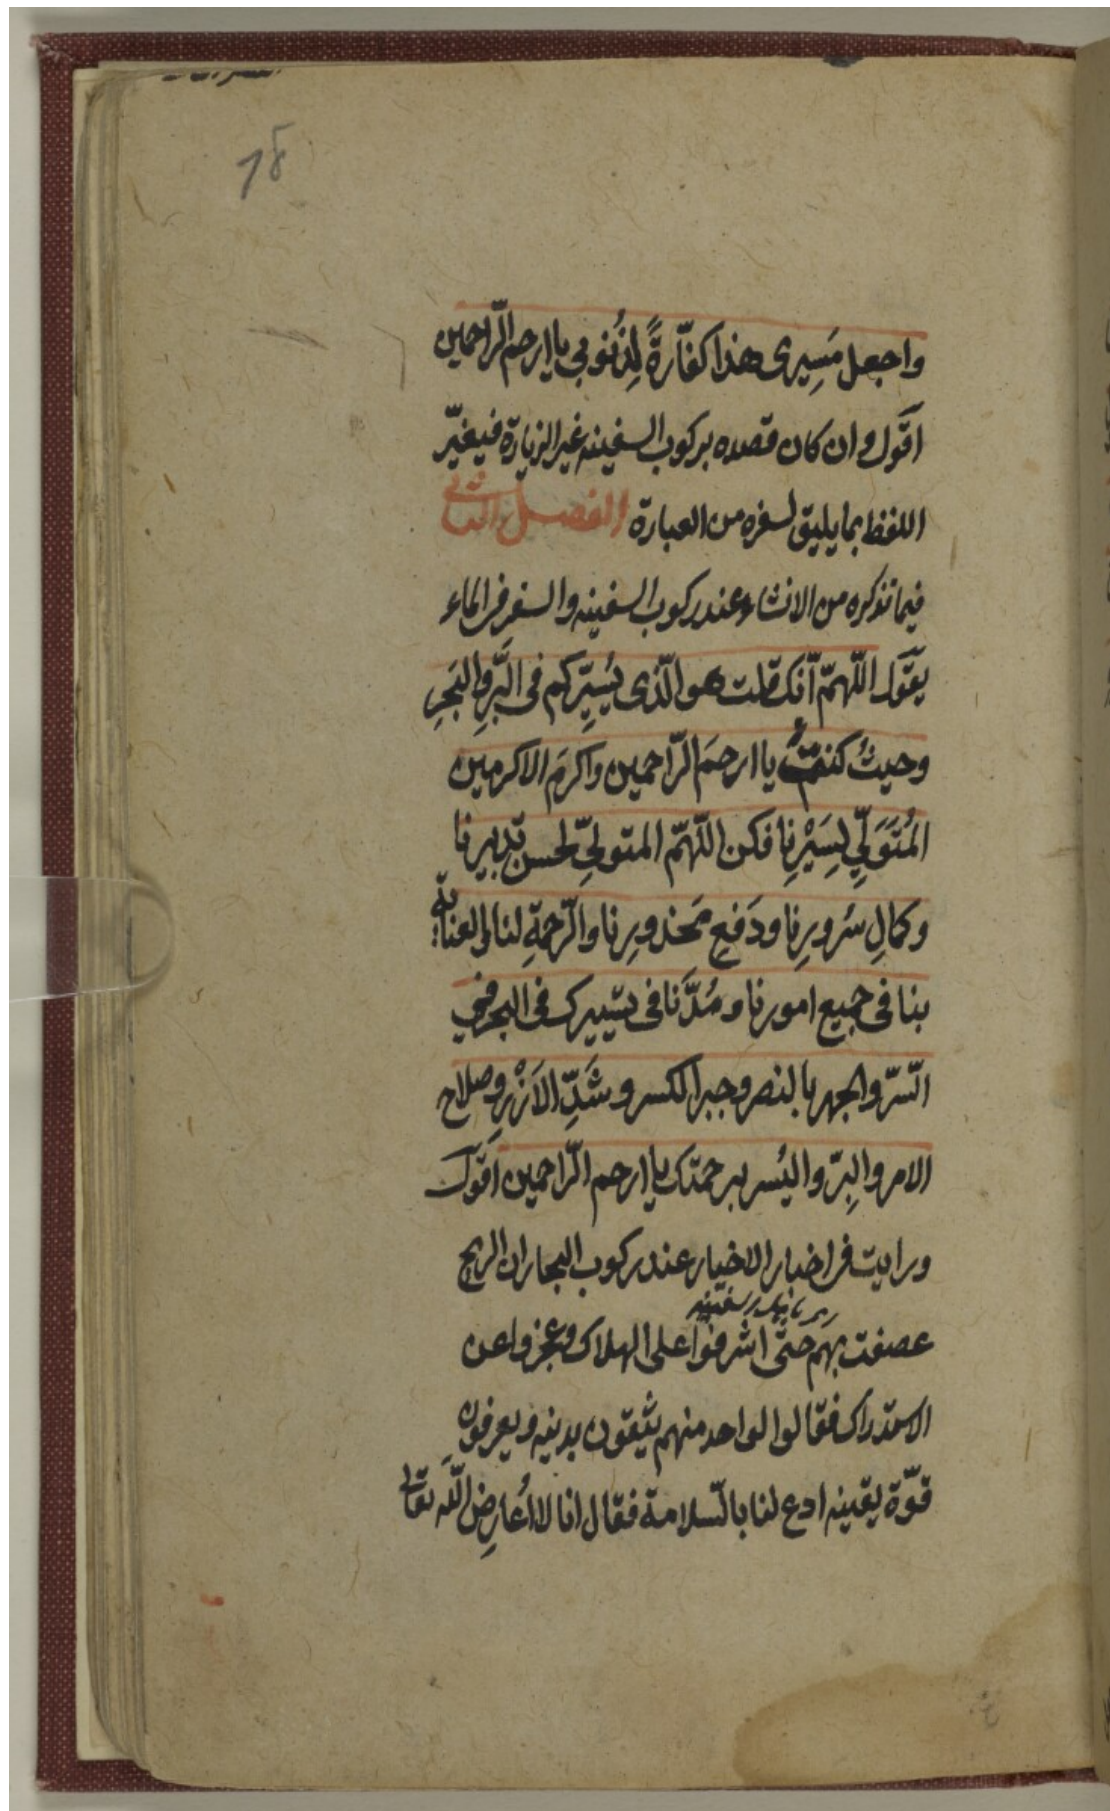 واجعل مَسِيرى هذا كفّارةً لِذُنُوبي يا ارحم الرّاحمين
اقول وان كان قصده بركوب السفينه غير الزيارة فيغيّر
اللفظ بما يليق لسفره من العبارة الفصل الثانى
فيما نذكره من الانشاء عند ركوب السفينه والسفر فى الماء
يقول اللّهمّ انّك قلت هو الّذى يُسيِّركم فى البَّرِ والبَحرِ
وحيثُ كنتَ يا ارحمَ الرّاحمين واكرمَ الاكرمين
المُتَوَلِّي لِسَيْرِنا فكن اللّهمّ المتولّي لحسن تدبيرنا
وكمالِ سُرورِنا ودَفعِ مَحذورِنا والرّحمةِ لنا والعناية
بنا فى جميع امورنا ومُدَّنا فى تسييرك فى البحر فى
السّرّ والجهر بالنصر وجبر الكسر وشَدِّ الاَزْرِ وصلاح
الامر والبِرّ واليُسر برحمتك يا ارحم الرّاحمين اقول
ورايت فى اخبار الاخيار عند ركوب البحار ان الريح
عصفت بهم حتّى اشرفوا على الهلاك وعجزوا عن
الاستدراك فقالوا لواحد منهم يثيقون بدينه ويعرفون
قوّة يقينه ادع لنا بالسّلامة فقال انا لا اُعارِض اللّه تعالى